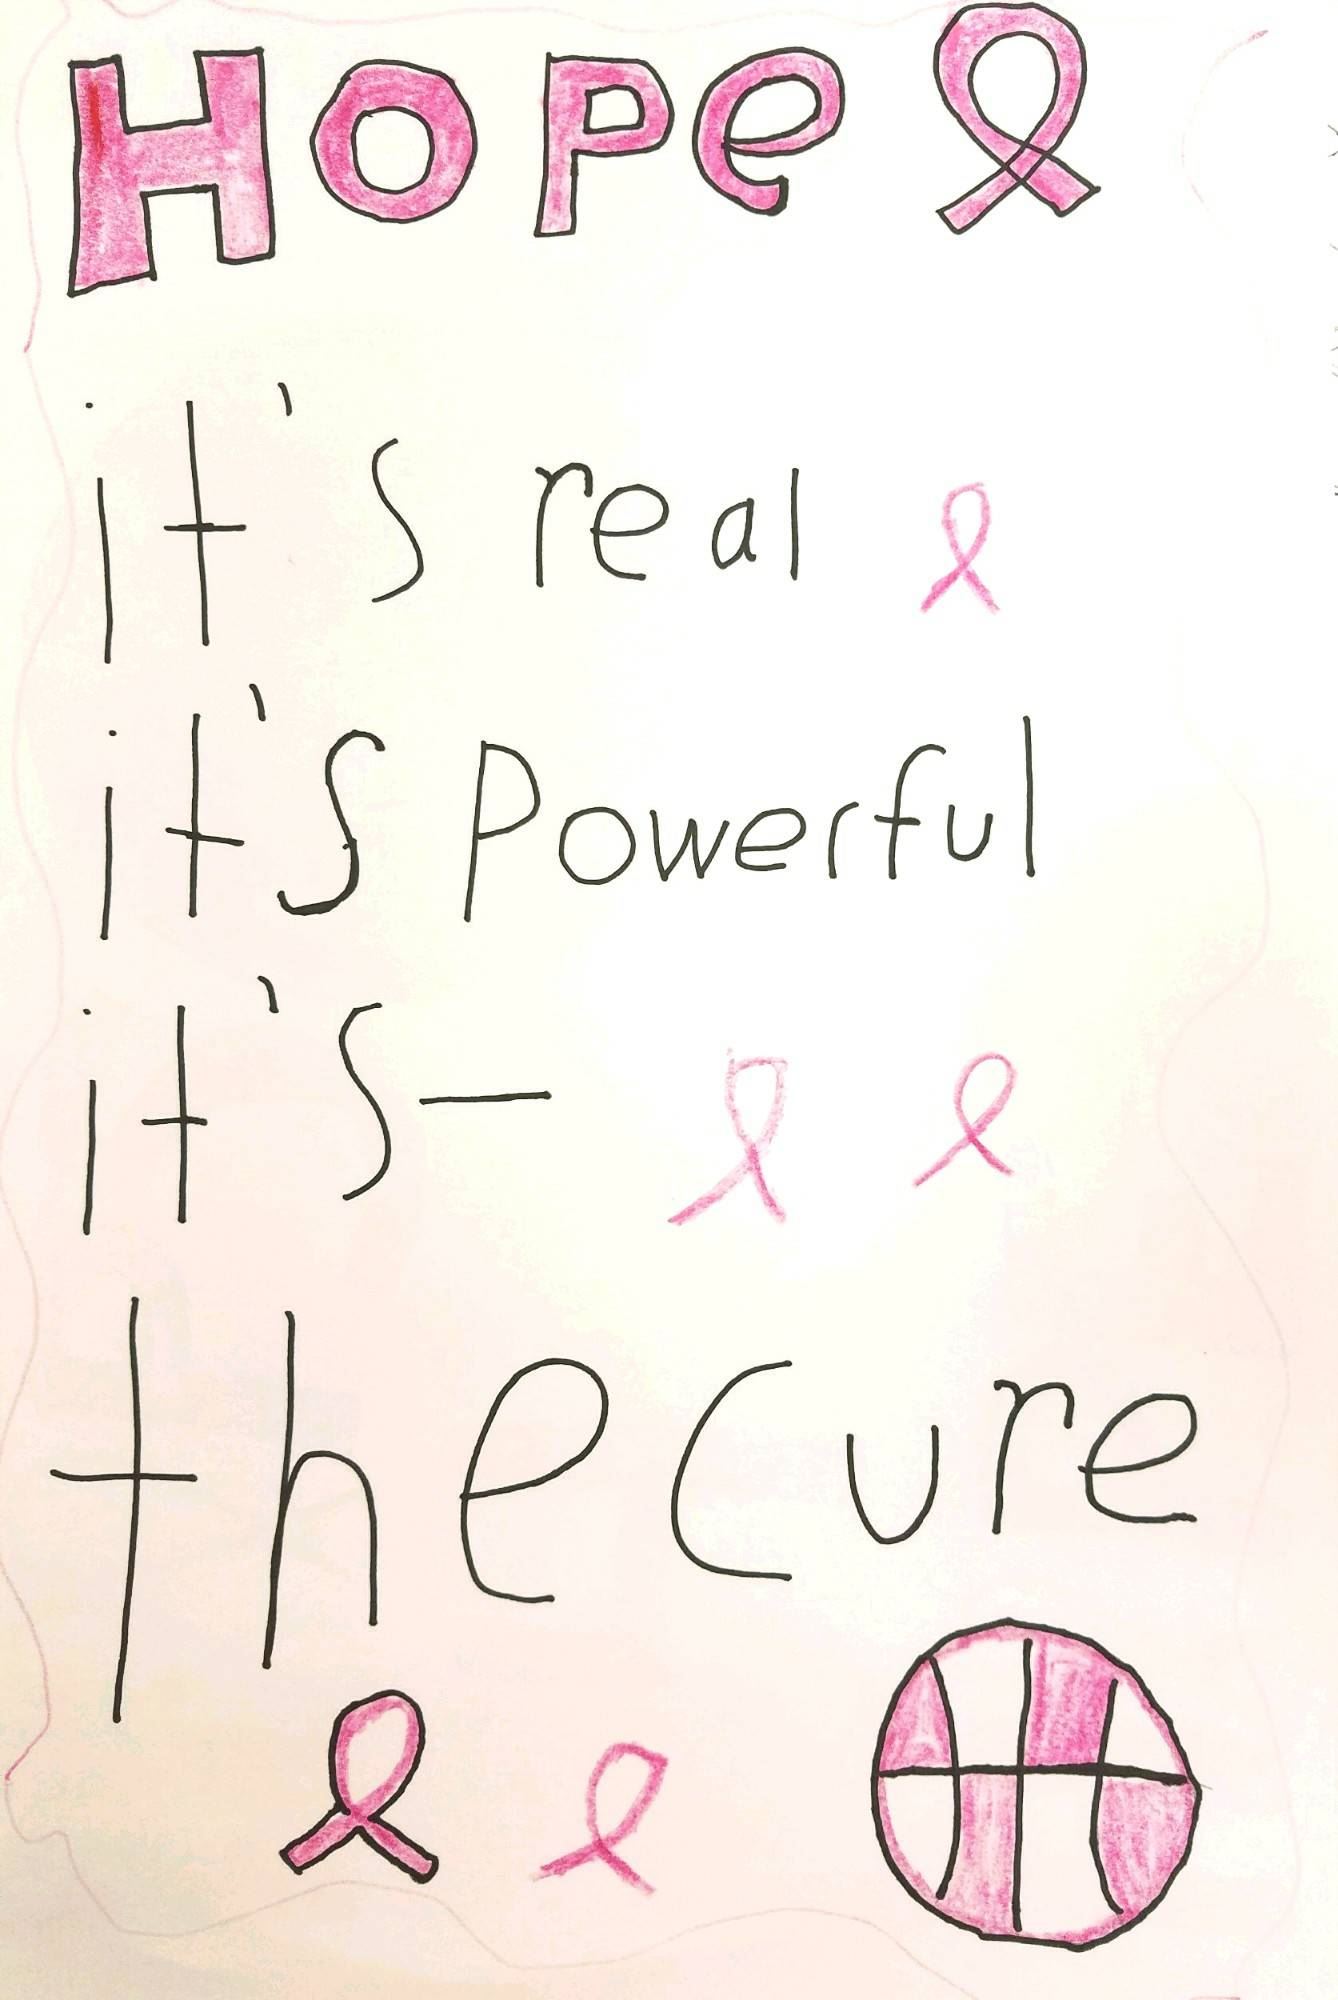 Hope
it's real
it's Powerful
it's—
the Cure